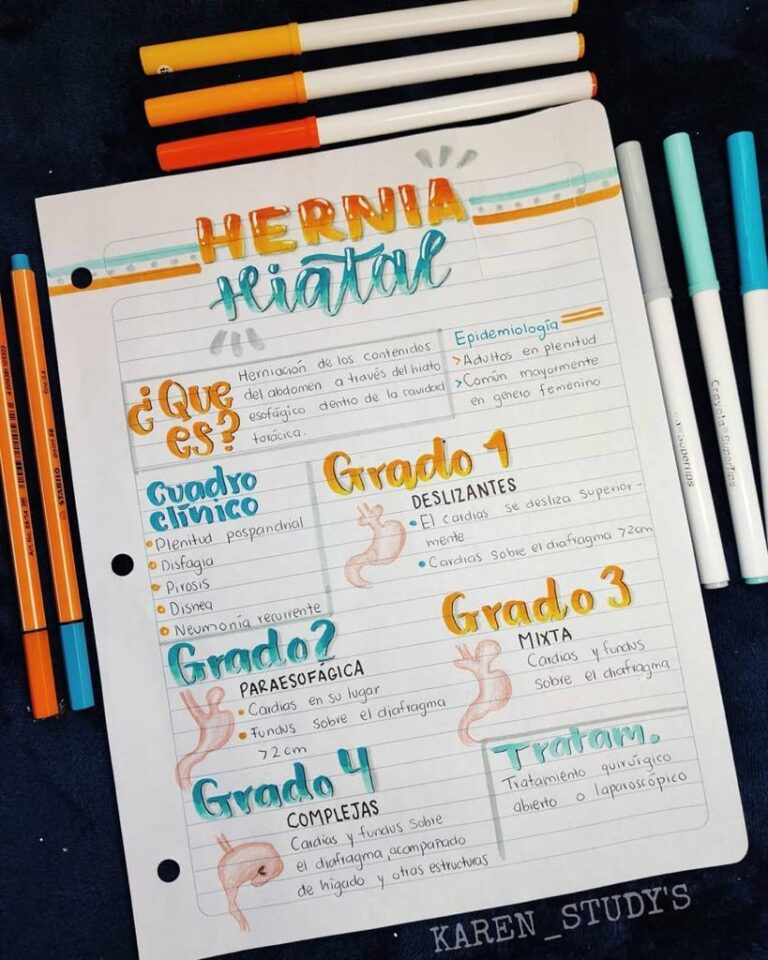 HERNIA
Hiatal
¿Que
es?
Herniación de los contenidos
del abdomen a través del hiato
esofágico dentro de la cavidad
torácica.
Epidemiología
> Adultos en plenitud
> Común mayormente
en género femenino
Cuadro
clínico
• Plenitud pospandrial
• Disfagia
• Pirosis
• Disnea
• Neumonía recurrente
Grado 1
DESLIZANTES
• El cardias se desliza superior-
mente.
• Cardias sobre el diafragma >2cm
Grado 2
PARAESOFÁGICA
• Cardias en su lugar
• Fundus sobre el diafragma
>2cm
Grado 3
MIXTA
Cardias y fundus
sobre el diafragma
Grado 4
COMPLEJAS
Cardias y fundus sobre
el diafragma, acompañado
de hígado y otras estructuras
Tratam.
Tratamiento quirúrgico
abierto o laparoscópico
KAREN_STUDY'S
STABILO
point 88
fine 0,4
Crayola Supertips
Supertips